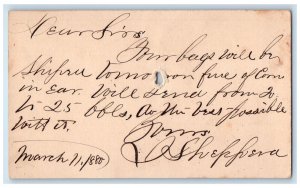 Dear Sirs
Your bags will be
Shiped tomorrow five of Corn
in ear. Will send from 20
to 25 bbls, do the best possible
with it.
Yours
Sheppard
March 11, 1880